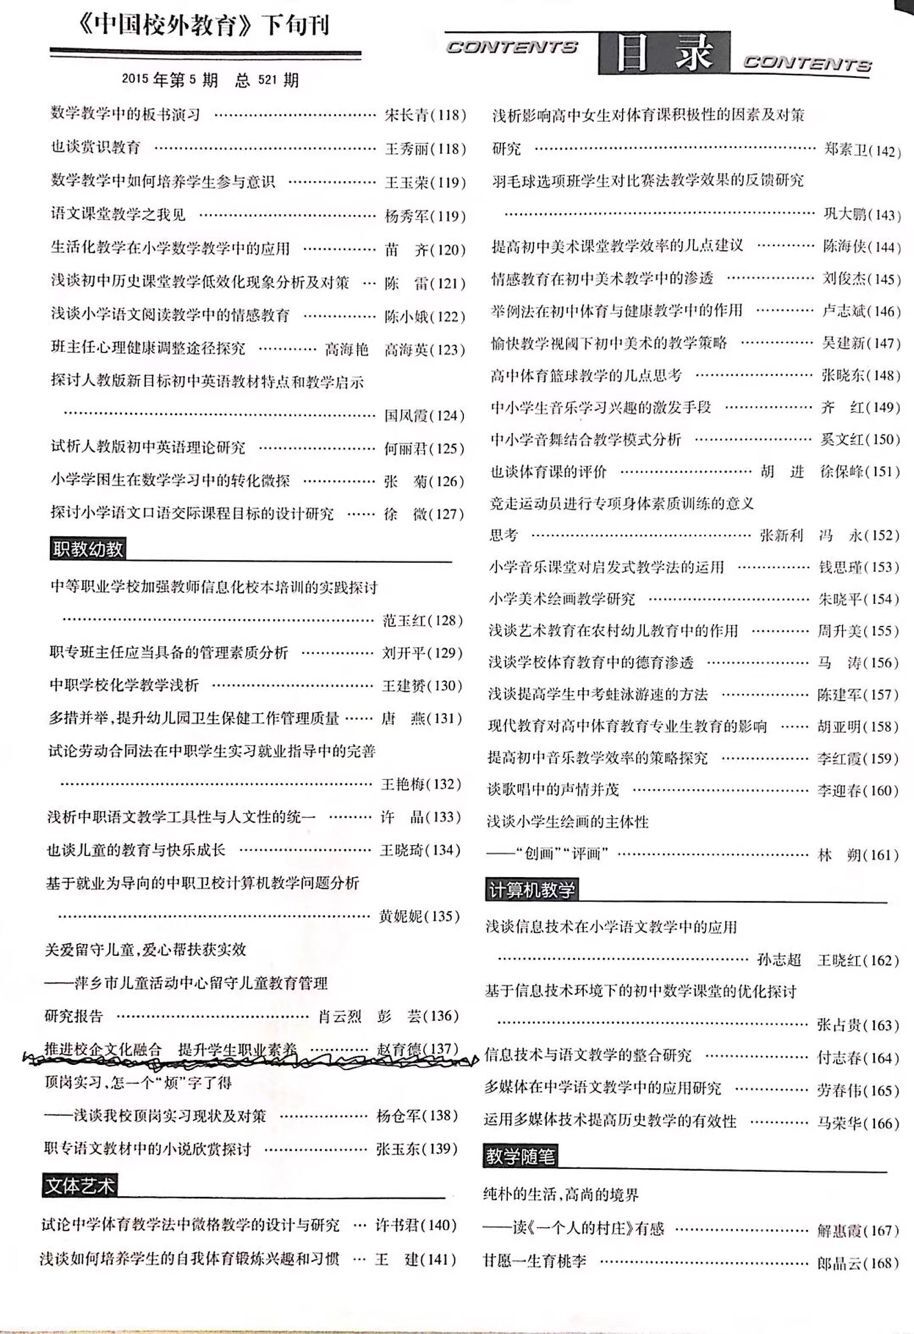 《中国校外教育》下旬刊
2015年第5期 总521期
CONTENTS 目录 CONTENTS
数学教学中的板书演习 ………………………… 宋长青(118)
也谈赏识教育 ………………………………… 王秀丽(118)
数学教学中如何培养学生参与意识 …………… 王玉荣(119)
语文课堂教学之我见 ………………………… 杨秀军(119)
生活化教学在小学数学教学中的应用 ………… 苗 齐(120)
浅谈初中历史课堂教学低效化现象分析及对策 … 陈 雷(121)
浅谈小学语文阅读教学中的情感教育 ………… 陈小娥(122)
班主任心理健康调整途径探究 ………… 高海艳 高海英(123)
探讨人教版新目标初中英语教材特点和教学启示
………………………………………………… 国凤霞(124)
试析人教版初中英语理论研究 ………………… 何丽君(125)
小学学困生在数学学习中的转化微探 ………… 张 菊(126)
探讨小学语文口语交际课程目标的设计研究 …… 徐 微(127)
职教幼教
中等职业学校加强教师信息化校本培训的实践探讨
………………………………………………… 范玉红(128)
职专班主任应当具备的管理素质分析 ………… 刘开平(129)
中职学校化学教学浅析 ……………………… 王建赟(130)
多措并举,提升幼儿园卫生保健工作管理质量 …… 唐 燕(131)
试论劳动合同法在中职学生实习就业指导中的完善
………………………………………………… 王艳梅(132)
浅析中职语文教学工具性与人文性的统一 ……… 许 晶(133)
也谈儿童的教育与快乐成长 …………………… 王晓琦(134)
基于就业为导向的中职卫校计算机教学问题分析
………………………………………………… 黄妮妮(135)
关爱留守儿童,爱心帮扶获实效
——萍乡市儿童活动中心留守儿童教育管理
研究报告 ……………………………… 肖云烈 彭 芸(136)
推进校企文化融合 提升学生职业素养 ………… 赵育德(137)
顶岗实习,怎一个“烦”字了得
——浅谈我校顶岗实习现状及对策 ……………… 杨仓军(138)
职专语文教材中的小说欣赏探讨 ………………… 张玉东(139)
文体艺术
试论中学体育教学法中微格教学的设计与研究 … 许书君(140)
浅谈如何培养学生的自我体育锻炼兴趣和习惯 … 王 建(141)
浅析影响高中女生对体育课积极性的因素及对策
研究 …………………………………………… 郑素卫(142)
羽毛球选项班学生对比赛法教学效果的反馈研究
………………………………………………… 巩大鹏(143)
提高初中美术课堂教学效率的几点建议 ………… 陈海侠(144)
情感教育在初中美术教学中的渗透 …………… 刘俊杰(145)
举例法在初中体育与健康教学中的作用 ………… 卢志斌(146)
愉快教学视阈下初中美术的教学策略 ………… 吴建新(147)
高中体育篮球教学的几点思考 ………………… 张晓东(148)
中小学生音乐学习兴趣的激发手段 …………… 齐 红(149)
中小学音舞结合教学模式分析 ………………… 奚文红(150)
也谈体育课的评价 …………………… 胡 进 徐保峰(151)
竞走运动员进行专项身体素质训练的意义
思考 …………………………………… 张新利 冯 永(152)
小学音乐课堂对启发式教学法的运用 ………… 钱思瑾(153)
小学美术绘画教学研究 ……………………… 朱晓平(154)
浅谈艺术教育在农村幼儿教育中的作用 ………… 周升美(155)
浅谈学校体育教育中的德育渗透 ……………… 马 涛(156)
浅谈提高学生中考蛙泳游速的方法 …………… 陈建军(157)
现代教育对高中体育教育专业生教育的影响 …… 胡亚明(158)
提高初中音乐教学效率的策略探究 …………… 李红霞(159)
谈歌唱中的声情并茂 ………………………… 李迎春(160)
浅谈小学生绘画的主体性
——“创画”“评画” …………………………… 林 朔(161)
计算机教学
浅谈信息技术在小学语文教学中的应用
……………………………………… 孙志超 王晓红(162)
基于信息技术环境下的初中数学课堂的优化探讨
………………………………………………… 张占贵(163)
信息技术与语文教学的整合研究 ……………… 付志春(164)
多媒体在中学语文教学中的应用研究 ………… 劳春伟(165)
运用多媒体技术提高历史教学的有效性 ………… 马荣华(166)
教学随笔
纯朴的生活,高尚的境界
——读《一个人的村庄》有感 …………………… 解惠霞(167)
甘愿一生育桃李 ……………………………… 郎晶云(168)